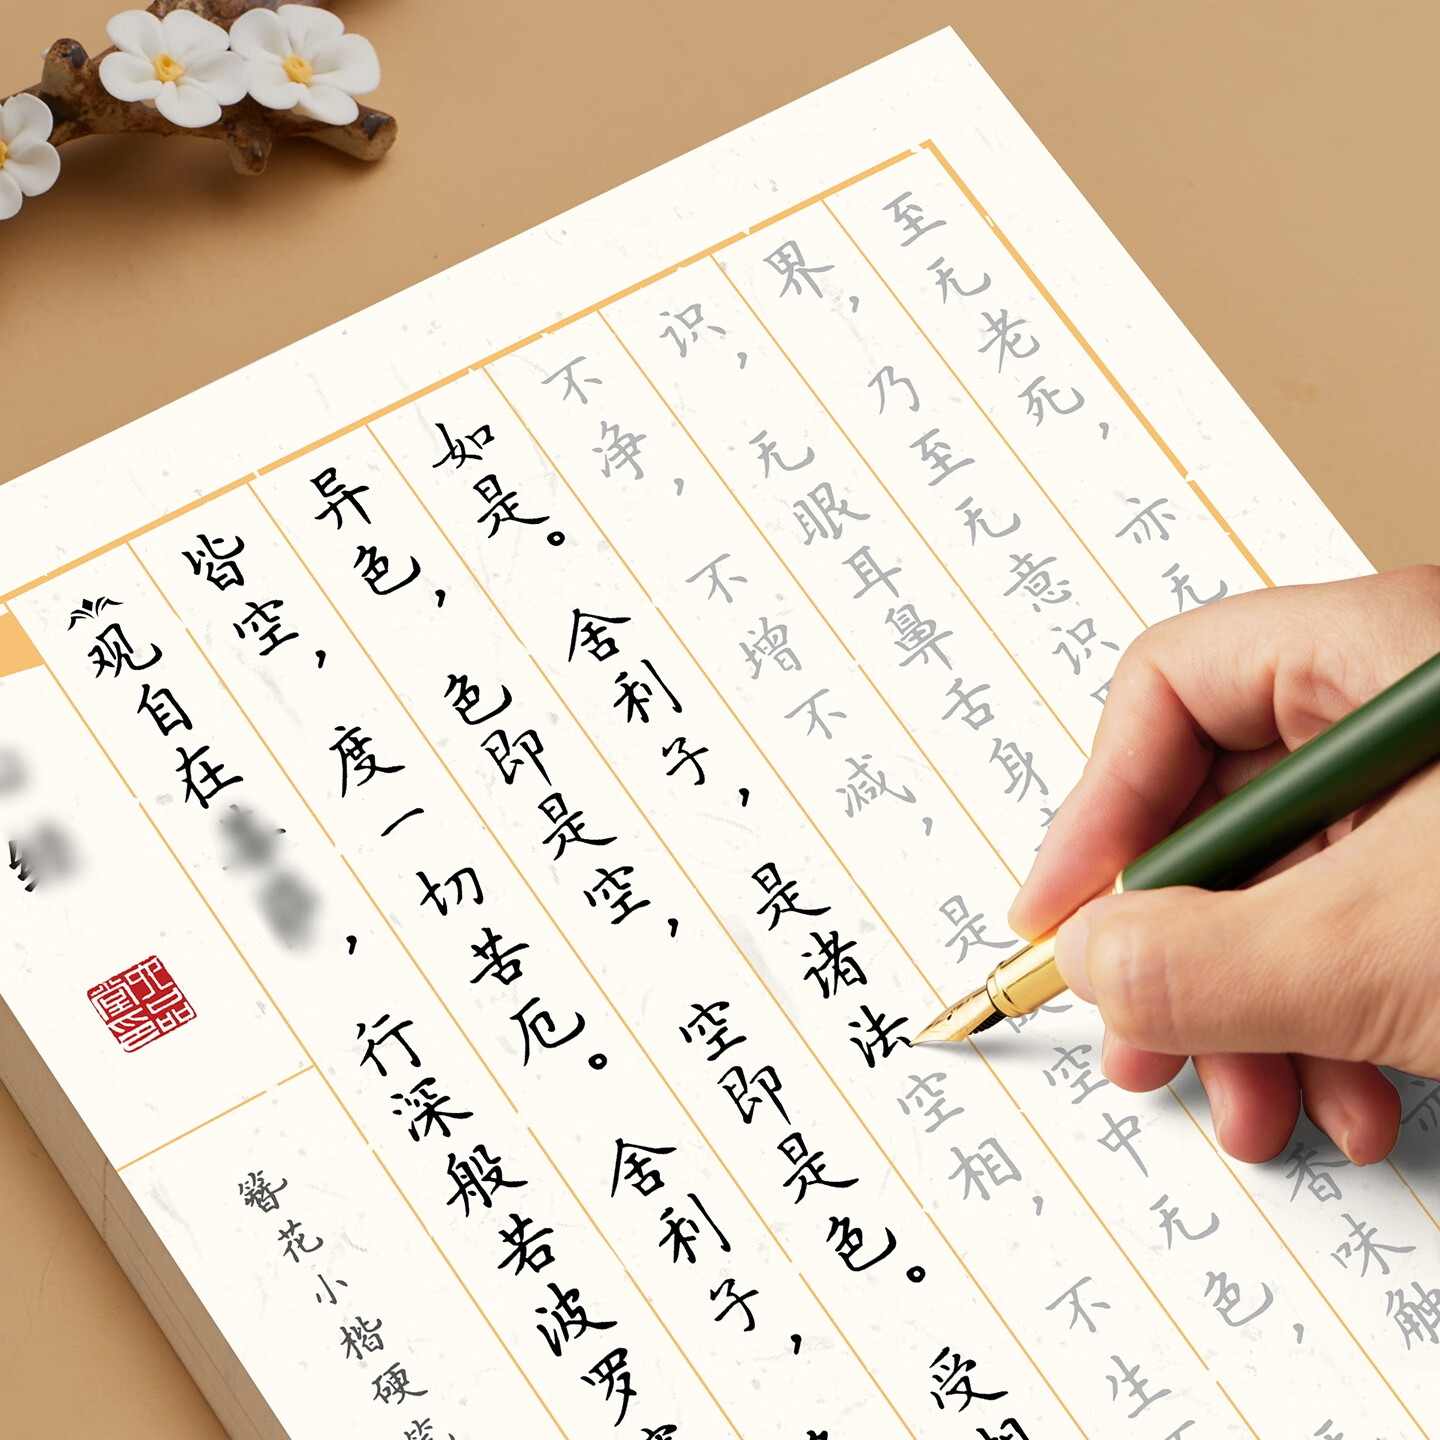 簪花小楷硬
观自在，行深般若波罗
皆空，度一切苦厄。舍利子，
异色，色即是空，空即是色。受
如是。舍利子，是诸法空相，不生
不净，不增不减，是空中无色，
识，无眼耳鼻舌身香味触
界，乃至无意识
至无老死，亦无